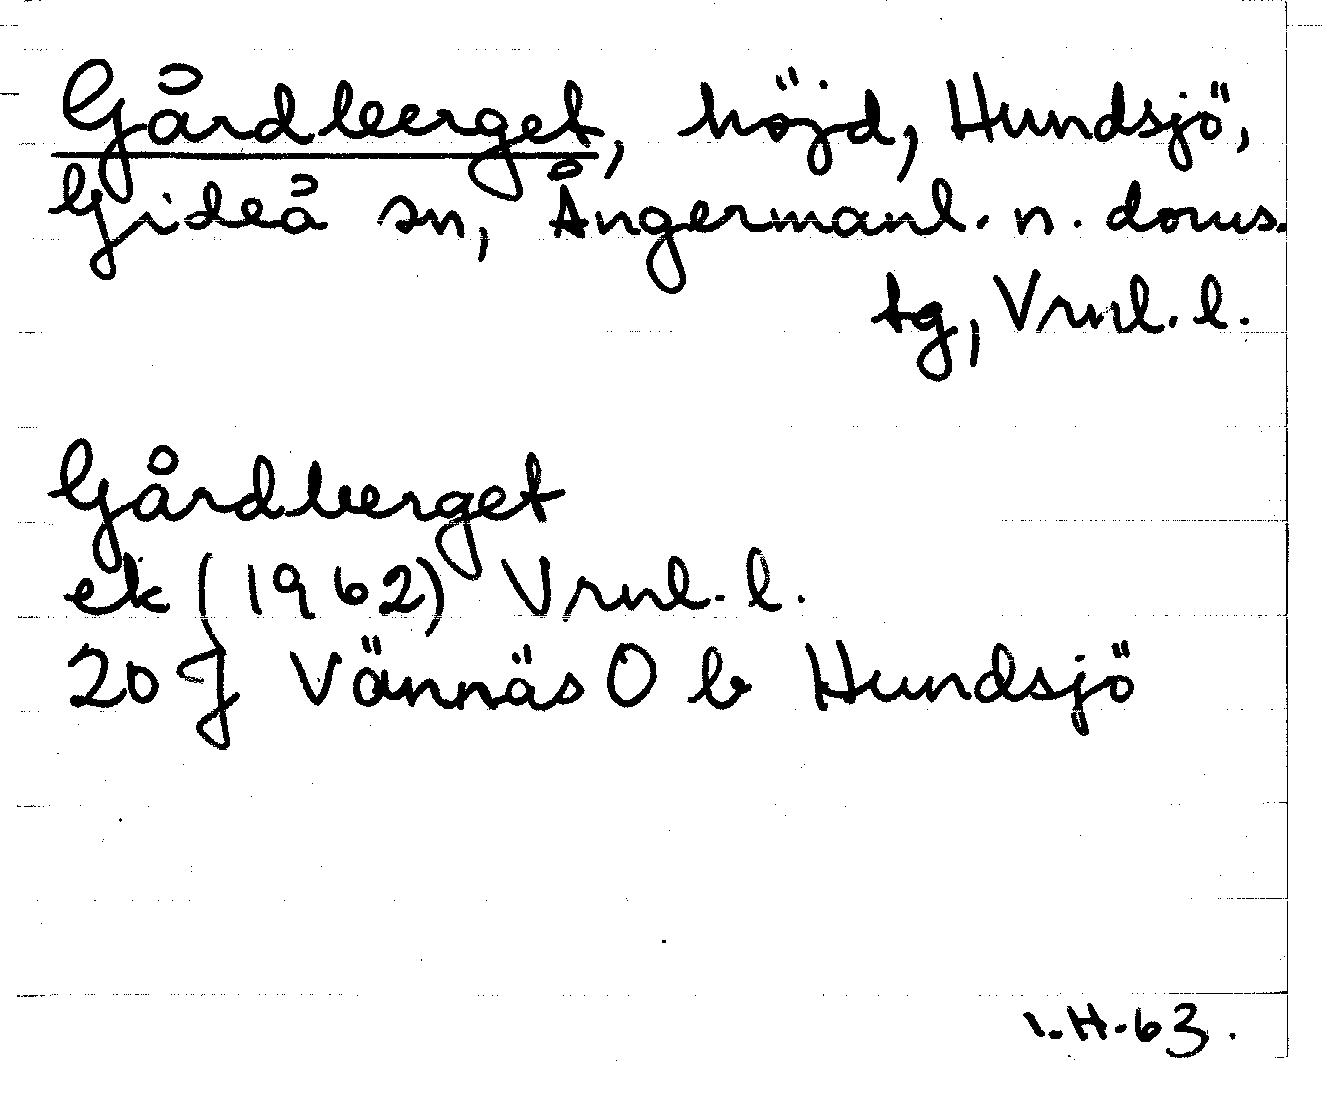 Gårdberget, höjd, Hundsjö,
Gideå sn, Ångermanl. n. doms.
tg, Vrnl. l.
Gårdberget
ek (1962) Vrnl. l.
20 J Vännäs O b Hundsjö
I.H.63.